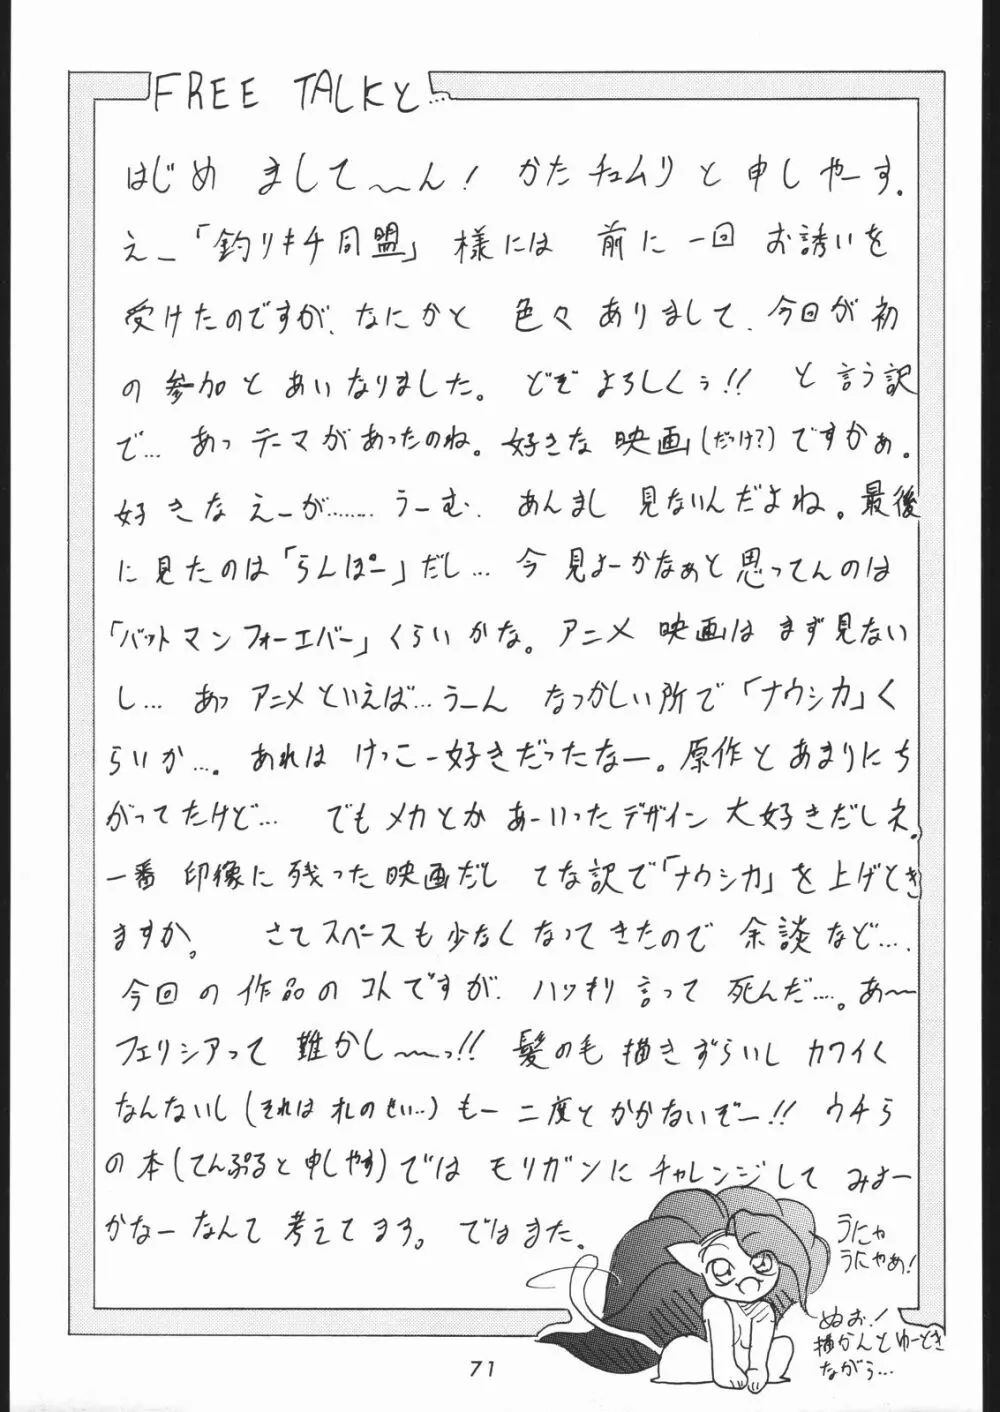 FREE TALKと…
はじめ ましてーーん! かたチュムリ と 申しやーす.
えー「釣りキチ同盟」様には 前に一回 お誘いを
受けたのですが、なにかと 色々 ありまして、今回が初
の 参加と あいなりました。 どぞ よろしくぅ!! と 言う訳
で… あっ テーマが あったのね。好きな 映画(だっけ?)ですかぁ。
好きな えーが……… うーむ、 あんまし 見ないんだよね。最後
に見たのは「らんぽー」だし… 今 見よーかなぁと 思ってんのは
「バットマンフォーエバー」くらいかな。アニメ 映画は まず見ない
し… あっ アニメといえば…うーん なつかしい所で「ナウシカ」く
らいか…. あれは けっこー好きだったなー。原作と あまりにち
がってたけど… でも メカとか あーいったデザイン 大好きだしネ。
一番 印像に 残った 映画だし てな訳で「ナウシカ」を 上げとき
ますか。 さてスペースも 少なくなってきたので 余談など….
今回の 作品の コトですが、ハッキリ 言って 死んだ…。あ〜
フェリシアって 難かし〜〜っ!! 髪の毛 描きずらいし カワイく
なんないし(それは オレのせい…)もー 二度と かかないぞー!! ウチら
の本(てんぷると 申しやす)では モリガンに チャレンジして みよー
かなーなんて 考えてます。ではまた。
うにゃ
うにゃあ!
ぬお!
描かんと ゆーとき
ながら…
71